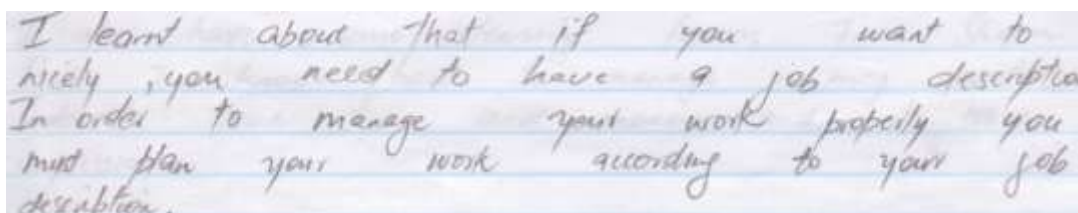 I learnt about that if you want to
nicely , you need to have a job descriptio
In order to manage your work properly you
must plan your work according to your job
description.